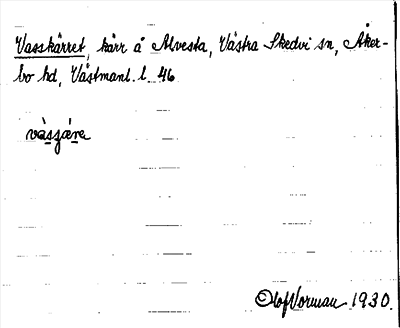 Vasskärret, kärr å Alvesta, Västra Skedvi sn, Åker-
bo hd, Västmanl. l. 46
Olof Norman 1930.